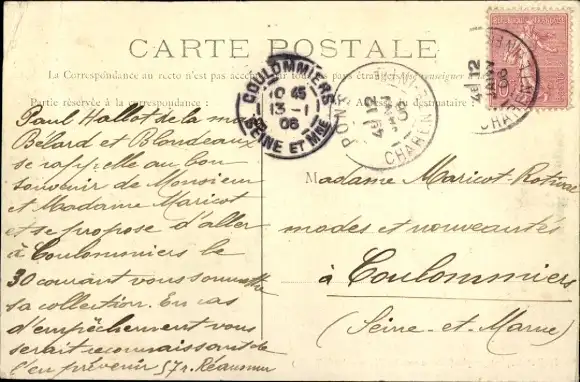 CARTE POSTALE
La Correspondance au recto n'est pas acceptée par tous les pays étrangers (Se renseigner à la
Partie réservée à la correspondance
Adresse du destinataire
COULOMMIERS
10 45
13 - 1
06
SEINE ET MNE
PONS
4E 12
JANV
06
CHAREN
RÉPUBLIQUE FRANÇAISE
4E 12
06
CHAREN
Paul Hallot de la mon
Bélard et Blondeaux
se rappelle au bon
souvenir de Monsieur
et Madame Maricot
et se propose d'aller
à Coulommiers le
30 courant vous soumettre
sa collection. En cas
d'empêchement vous
serait reconnaissant de
l'en prévenir 57 r. Réaumur
Madame Maricot-Rotival
modes et nouveautés
à Coulommiers
(Seine-et-Marne)